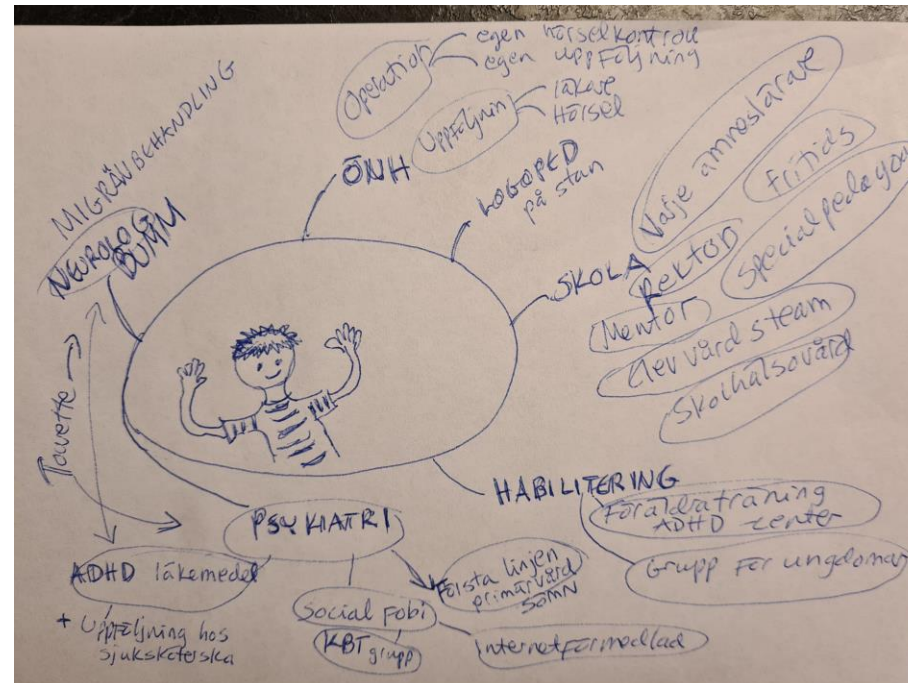 MIGRÄNBEHANDLING
NEUROLOGI
BUMM
Tourette
ÖNH
Operation
egen hörselkontroll
egen uppföljning
Uppföljning
läkare
Hörsel
LOGOPED
på stan
SKOLA
Varje ämneslärare
fritids
rektor
Specialpedagog
Mentor
Elevvårdsteam
Skolhälsovård
HABILITERING
Föräldraträning
ADHD center
Grupp för ungdomar
PSYKIATRI
ADHD läkemedel
+ Uppföljning hos
sjuksköterska
Social fobi
KBT grupp
Internetförmedlad
Första linjen
primärvård
SÖMN